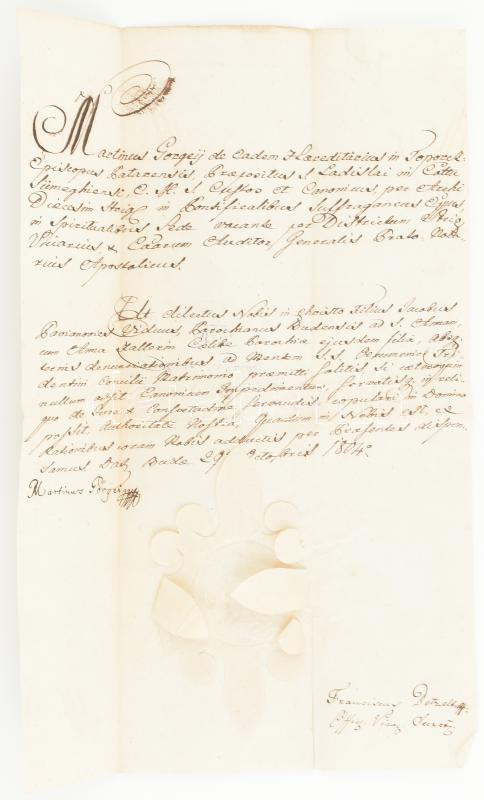 Martinus Görgeij de Eadem Haereditarius in Toporcz
Episcopus Paterensis, Praepositus S. Ladislai in
E. M. S. Custos et Canonicus, per Archi
Dioecesim Strig in Pontificalibus Suffraganeus Eppus,
in Spiritualibus Sede vacante per Districtum
Vicarius & Causarum Auditor Generalis Protho Nota
rius Apostolicus.
Ut dilectus Nobis in Christo Filius Jacobus
Viduus, Parochianus Budensis ad S. Annam,
cum Anna Caelibe Parochiae ejusdem filia, absq
ternis denunciationibus ad Mentem S. S. Oecumenici Tri
dentini Concilii Matrimonio praemitti solitis si
nullum obsit Canonicum Impedimentum, servatisq in reli
quo de Jure & Consvetudine servandis copulari in Domino
possit Authoritate Nostra, Quantum in Nobis est, ex
Rationibus coram Nobis adductis per Praesentes dispen
samus Dat. Budae 29 Octobris 1804
Martinus Görgeij
Franciscus